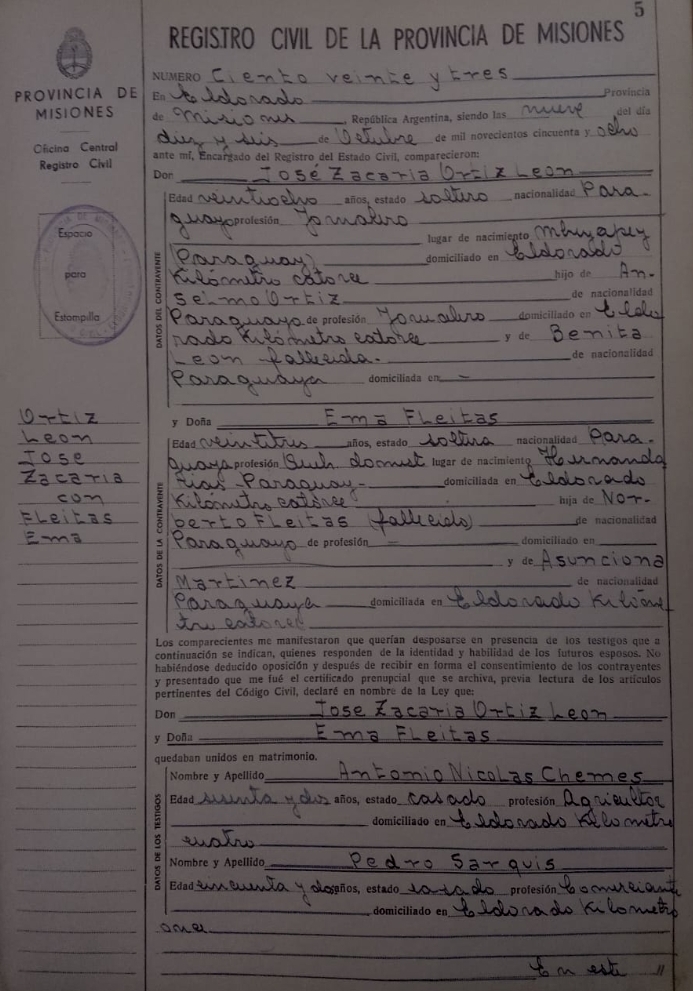 5
REGISTRO CIVIL DE LA PROVINCIA DE MISIONES
PROVINCIA DE
MISIONES
Oficina Central
Registro Civil
Espacio
para
Estampilla
Ortiz
Leon
Jose
Zacaria
con
Fleitas
Ema
NUMERO Ciento veinte y tres
En Eldorado Provincia
de Misiones, República Argentina, siendo las nueve del día
diez y seis de Octubre de mil novecientos cincuenta y ocho
ante mí, Encargado del Registro del Estado Civil, comparecieron:
Don Jose Zacaria Ortiz Leon
DATOS DEL CONTRAYENTE
Edad veintiocho años, estado soltero nacionalidad Para-
guayo profesión Jornalero
lugar de nacimiento Mbuyapey
(Paraguay) domiciliado en Eldorado
Kilómetro catorce hijo de An-
selmo Ortiz de nacionalidad
Paraguayo de profesión Jornalero domiciliado en Eldo
rado Kilómetro catorce y de Benita
Leon fallecida.- de nacionalidad
Paraguaya domiciliada en -
y Doña Ema Fleitas
DATOS DE LA CONTRAYENTE
Edad veintitres años, estado soltera nacionalidad Para-
guaya profesión Queh. domest lugar de nacimiento Hernanda
rias Paraguay- domiciliada en Eldorado
Kilómetro catorce hija de Nor-
berto Fleitas (fallecido) de nacionalidad
Paraguayo de profesión - domiciliado en
y de Asunciona
Martinez de nacionalidad
Paraguaya domiciliada en Eldorado Kilóme
tro catorce
Los comparecientes me manifestaron que querían desposarse en presencia de los testigos que a
continuación se indican, quienes responden de la identidad y habilidad de los futuros esposos. No
habiéndose deducido oposición y después de recibir en forma el consentimiento de los contrayentes
y presentado que me fué el certificado prenupcial que se archiva, previa lectura de los artículos
pertinentes del Código Civil, declaré en nombre de la Ley que:
Don Jose Zacaria Ortiz Leon
y Doña Ema Fleitas
quedaban unidos en matrimonio.
DATOS DE LOS TESTIGOS
Nombre y Apellido Antonio Nicolas Chemes
Edad sesenta y dos años, estado casado profesión Agricultor
domiciliado en Eldorado Kilometro
cuatro
Nombre y Apellido Pedro Sarquis
Edad cincuenta y dos años, estado casado profesión Comerciante
domiciliado en Eldorado Kilometro
once
En este //